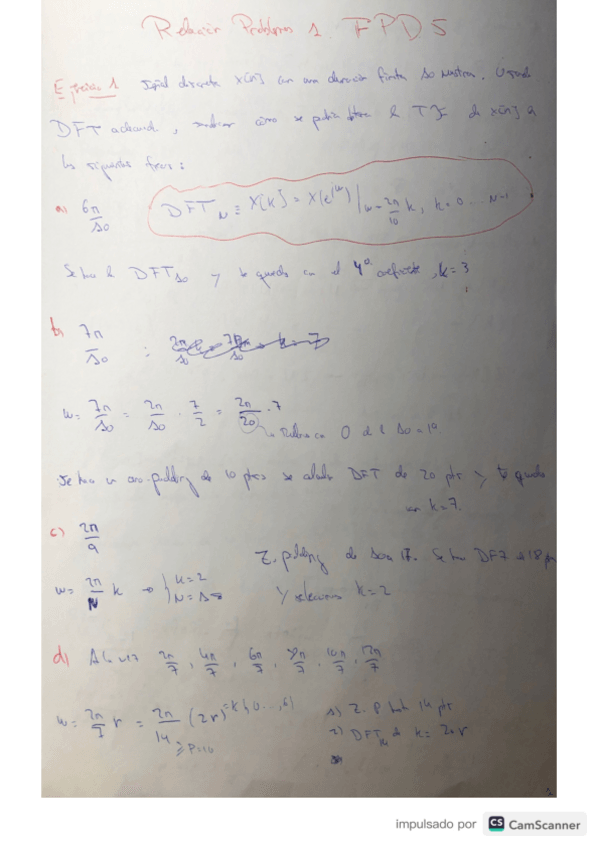 Relación Problemas 1 FPDS
Ejercicio 1 Señal discreta x[n] con una duración finita 10 muestras.
DFT adecuada, cómo se podría obtener la TF de x[n] a
las siguientes frecs:
a) 6π/10 DFT_N ≡ X[k] = X(e^jω)|ω=2π/10 k, k=0 ... N-1
Se hace la DFT10 y te quedas con el 4º coeficiente, k=3
b) 7π/10 :
ω = 7π/10 = 2π/10 · 7/2 = 2π/20 · 7
Rellena con 0 de 10 - 19
Se hace un zero-padding de 10 ptos se calcula DFT de 20 ptos y te quedas
con k=7.
c) 2π/9
Z. padding de 10 a 17. Se hace DFT de 18 ptos
ω = 2π/N k → k=2 N=18
Y seleccionas k=2
d) A la vez 2π/7, 4π/7, 6π/7, 8π/7, 10π/7, 12π/7
ω = 2π/7 r = 2π/14 (2r)
1) Z. P. hasta 14 ptos
2) DFT14 k = 2·r
impulsado por CS CamScanner